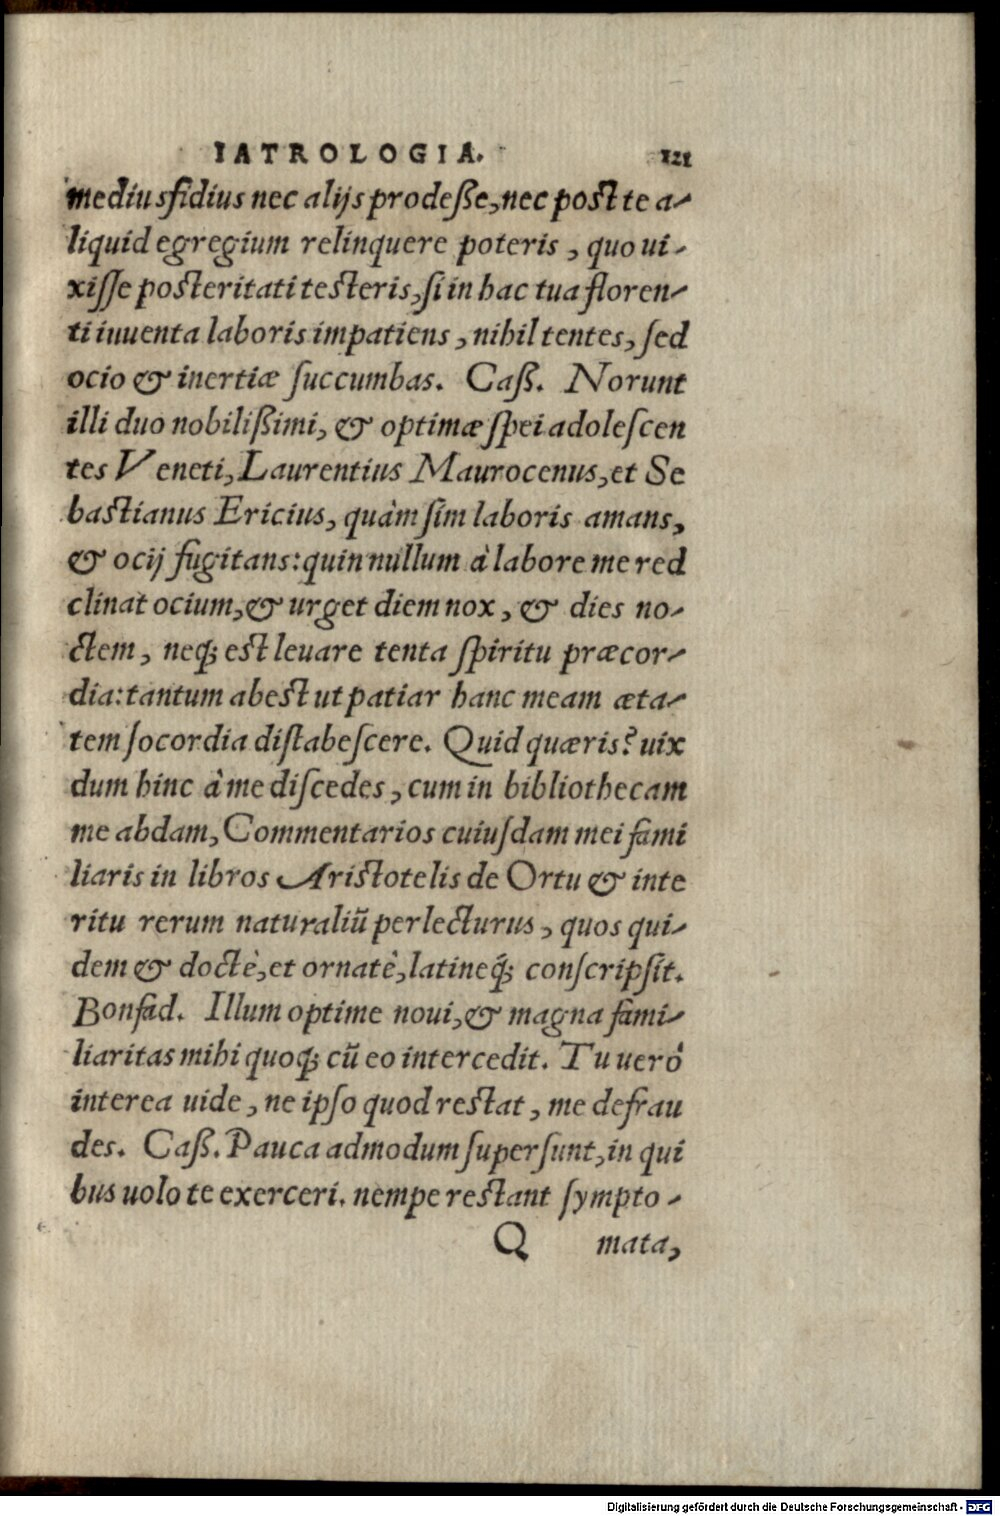 IATROLOGIA. 121
mediusfidius nec alijs prodeße, nec post te a-
liquid egregium relinquere poteris, quo ui-
xiſſe posteritati testeris, ſi in hac tua floren-
ti iuuenta laboris impatiens, nihil tentes, ſed
ocio & inertiæ ſuccumbas. Caß. Norunt
illi duo nobilißimi, & optimæ ſpei adoleſcen
tes Veneti, Laurentius Maurocenus, et Se
bastianus Ericius, quàm ſim laboris amans,
& ocij fugitans: quin nullum à labore me red
clinat ocium, & urget diem nox, & dies no-
ctem, neq; est leuare tenta ſpiritu præcor-
dia: tantum abest ut patiar hanc meam æta-
tem ſocordia diſtabeſcere. Quid quæris? uix
dum hinc à me diſcedes, cum in bibliothecam
me abdam, Commentarios cuiuſdam mei fami
liaris in libros Aristotelis de Ortu & inte
ritu rerum naturaliũ perlecturus, quos qui-
dem & doctè, et ornatè, latineq́; conſcripſit.
Bonfad. Illum optime noui, & magna fami-
liaritas mihi quoq; cũ eo intercedit. Tu uerò
interea uide, ne ipſo quod restat, me defrau
des. Caß. Pauca admodum ſuperſunt, in qui
bus uolo te exerceri. nempe restant ſympto-
Q mata,
Digitalisierung gefördert durch die Deutsche Forschungsgemeinschaft - DFG